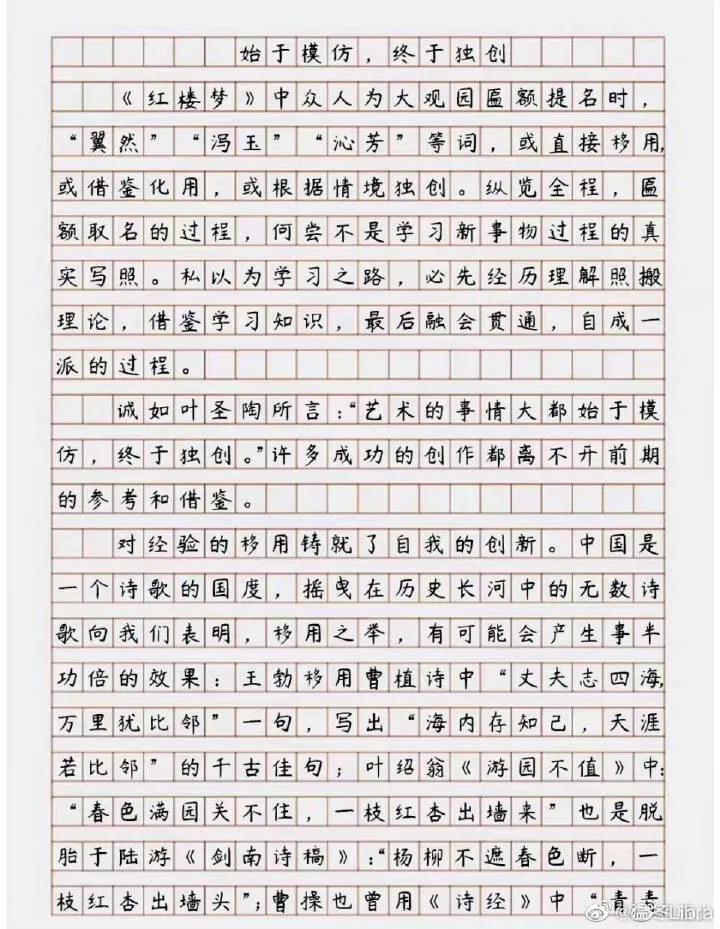 始于模仿，终于独创
《红楼梦》中众人为大观园匾额提名时，
“翼然”“泻玉”“沁芳”等词，或直接移用，
或借鉴化用，或根据情境独创。纵览全程，匾
额取名的过程，何尝不是学习新事物过程的真
实写照。私以为学习之路，必先经历理解照搬
理论，借鉴学习知识，最后融会贯通，自成一
派的过程。
诚如叶圣陶所言：“艺术的事情大都始于模
仿，终于独创。”许多成功的创作都离不开前期
的参考和借鉴。
对经验的移用铸就了自我的创新。中国是
一个诗歌的国度，摇曳在历史长河中的无数诗
歌向我们表明，移用之举，有可能会产生事半
功倍的效果：王勃移用曹植诗中“丈夫志四海，
万里犹比邻”一句，写出“海内存知己，天涯
若比邻”的千古佳句；叶绍翁《游园不值》中：
“春色满园关不住，一枝红杏出墙来”也是脱
胎于陆游《剑南诗稿》：“杨柳不遮春色断，一
枝红杏出墙头”；曹操也曾用《诗经》中“青青
Libra